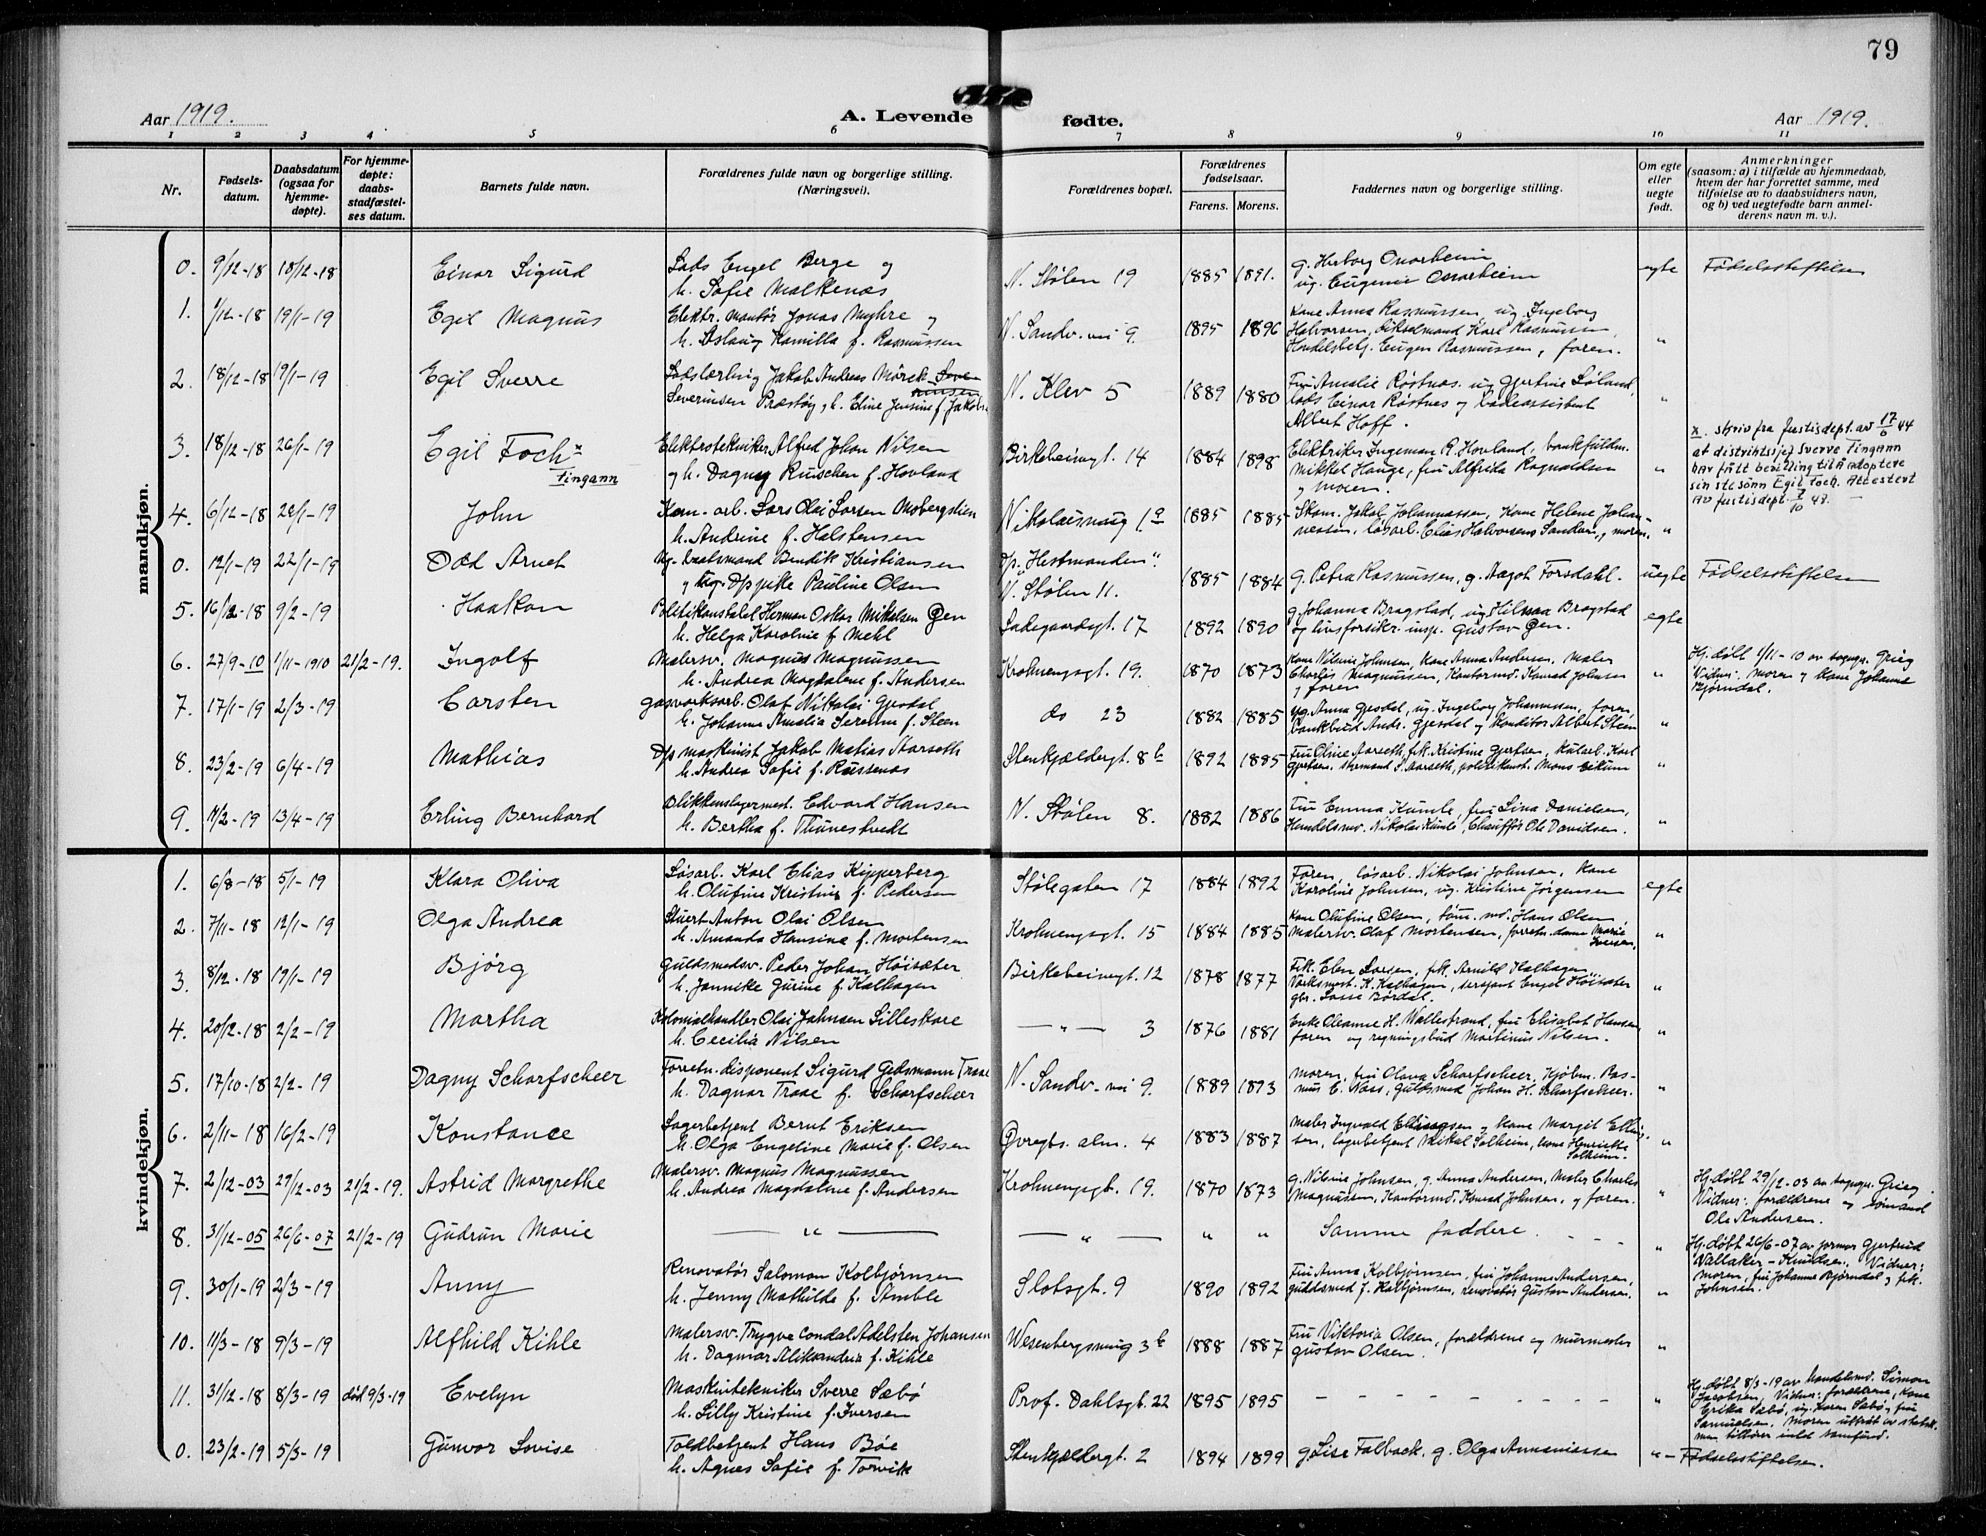 79
Aar 1919. A. Levende fødte. Aar 1919.
1 2 3 4 5 6 7 8 9 10 11
Nr.
Fødsels-
datum.
Daabsdatum
(ogsaa for
hjemme-
døpte).
For hjemme-
døpte:
daabs-
stadfæstel-
ses datum.
Barnets fulde navn.
Forældrenes fulde navn og borgerlige stilling.
(Næringsvei).
Forældrenes bopæl.
Forældrenes
fødselsaar.
Farens. Morens.
Faddernes navn og borgerlige stilling.
Om egte
eller
uegte
født.
Anmerkninger
(saasom: a) i tilfælde av hjemmedaab,
hvem der har forrettet samme, med
tilføielse av to daabsvidners navn,
og b) ved uegtefødte barn anmel-
derens navn m. v.).
mandkjøn.
0. 9/12-18 18/12-18 Einar Sigurd
Lods Engel Berge og
h. Sofie Malkenæs
N. Stølen 19 1885 1891.
g. Herborg Onarheim
ug. Eugenie Onarheim
egte Fødselsstiftelsen
1. 1/12-18 19/1-19 Egil Magnus
Elektr. mantør Jonas Myhre og
h. Aslaug Kamilla f. Rasmussen
N. Sandv. vei 9. 1895 1896
Kone Anna Rasmussen, ug. Ingeborg
Halvorsen, Karl Rasmussen,
Handelsbetj. Eugen Rasmussen, faren.
"
2. 18/12-18 19/1-19 Egil Sverre
Lodslærling Jakob Andreas Mørch Seve
rinsen
Severinsen Præstøy, h. Eline Jensine f. Jakobs.
N. Klev 5 1889 1880
Fru Amalie Røstnes. ug Gjertine Søland,
lods Einar Røstnes og badeassistent
Albert Hoff.
"
3. 18/12-18 26/1-19 Egil Foch x
Tingann
Elektrotekniker Alfred Johan Nilsen
og h. Dagny Ruschen f. Hovland
Birkebeinergt. 14 1884 1898
Elektriker Ingeman R. Hovland, bankfuldm.
Mikkel Hauge, fru Alfrida Ragnaldsen
og moren.
"
x. skriv fra justisdept. av 17/6 44
at distriktssjef Sverre Tingann
har fått bevilling til å adoptere
sin stesønn Egil Foch. Attestert
av justisdept. 7/10 43. —
4. 6/12-18 26/1-19 John
Kom. arb. Lars Olai Larsen Mobergslien
h. Andrine f. Halstensen
Nikolaismaug 1a 1885 1885
Skom. Jakob Johannessen, Kone Helene Johan-
nessen, løsarb. Elias Halvorsens Sandven, moren.
"
0. 12/1-19 22/1-19 Odd Arnet
Ug. kvalsmand Bendik Kristiansen
og ug. Dp pike Pauline Olsen
Dp. "Hestmanden".
N. Stølen 11. 1885 1884
g. Petra Rasmussen, g. Aagot Forsdahl.
uegte Fødselsstiftelsen
5. 16/12-18 9/2-19 Haakon
Politikonstabel Herman Oskar Mikalsen Øen
h. Helga Karoline f. Mehl
Ladegaardsgt. 17 1892 1890
g. Johanna Bragstad, ug. Hilmaa Bragstad
og livsforsikr. insp. Gustav Øen.
egte
6. 27/9-10 1/11-1910 21/2-19. Ingolf
Malersv. Magnus Magnussen
h. Andrea Magdalene f. Andersen
Krohnengsgt. 19. 1870 1873
Kone Nilvine Johnsen, Kone Anna Andersen, Maler
Charles Magnussen, Kontormd. Konrad Johnsen
og faren
"
Hj. døbt 1/11-10 av sogepr. Grieg
Vidner: Moren og Kone Johanne
Bjørndal.
7. 17/1-19 2/3-19 Carsten
gasverksarb. Olaf Nikolai Gjesdal
h. Johanna Amalia Severine f. Steen
do 23 1882 1885
ug. Anna Gjesdal, ug. Ingeborg Johannessen, faren,
bankbud Andr. Gjesdal og Konditor Albert Steen
"
8. 23/2-19 6/4-19 Mathias
Dp maskinist Jakob Matias Aarseth
h. Andrea Sofie f. Russenes
Stenkjældergt. 8b 1892 1885
Fru Oline Aarseth, frk. Kristine Gjertsen, Karl
Gjertsen, styrmand S. Aarseth, politikonst. Mons Eikum
"
9. 11/2-19 13/4-19 Erling Bernhard
Blikkenslagermest. Edvard Hansen
h. Bertha f. Thunestvedt
N. Stølen 8. 1882 1886
Fru Emma Kumle, fru Lina Danielsen,
Handelsmd. Nikolai Kumle, Chauffør Ole Davidsen.
"
kvindekjøn.
1. 6/8-18 5/1-19 Klara Oliva
Løsarb. Karl Elias Kipperberg
h. Olufine Kristine f. Pedersen
Stølegaten 17 1884 1892
Faren, løsarb. Nikolai Johnsen, Kone
Karoline Johnsen, ug. Kristine Jørgensen
egte
2. 7/11-18 12/1-19 Olga Andrea
Stuert Anton Olai Olsen
h. Amanda Hansine f. Mortensen
Krohnengsgt. 15 1884 1885
Kone Olufine Olsen, tøm. md. Hans Olsen
Malersv. Olaf Mortensen, forretn. dame Marie
Iversen.
"
3. 8/12-18 19/1-19 Bjørg
Guldsmedsv. Peder Johan Høisæter
h. Jannike Gurine f. Kalhagen
Birkebeinergt. 12 1878 1877
Frk. Elen Larsen, frk. Arnild Kalhagen
Verksmest. K. Kalhagen, sersjant Engel Høisæter
gbr. Lasse Børdal.
"
4. 20/12-18 2/2-19 Martha
Kolonialhandler Olai Johnsen Lilleskare
h. Cecilia Nilsen
— " — 3 1876 1881
Enke Oleanne H. Wallestrand, fru Elisabet Hansen
faren og regningsbud Martinus Nilsen.
"
5. 17/10-18 2/2-19 Dagny Scharfscheer
Forretn. disponent Sigurd Gedsmann Traae
h. Dagmar Traae f. Scharfscheer
N. Sandv. vei 9. 1889 1893
Moren, fru Olava Scharfscheer, Kjøbm. Ras-
mus E. Naas, guldsmed Johan H. Scharfscheer.
"
6. 2/11-18 16/2-19 Konstance
Lagerbetjent Bernt Eriksen
h. Olga Engeline Marie f. Olsen
Øvregts. alm. 4 1883 1887
Maler Ingvald Ellingsen og Kone Margit Elling-
sen, lagerbetjent Mikal Solheim, Kone Henrikke
Solheim.
"
7. 2/12-03 29/12-03 21/2-19. Astrid Margrethe
Malersv. Magnus Magnussen
h. Andrea Magdalene f. Andersen
Krohnengsgt. 19. 1870 1873
g. Nilvine Johnsen, g. Anna Andersen, Maler Charles
Magnussen, Kontormd. Konrad Johnsen, og faren.
"
Hj. døbt 29/12-03 av sogepr. Grieg.
Vidner: forældrene og sømand
Ole Andersen.
8. 31/12-05 26/6-07 21/2-19 Gudrun Marie
— " —
— " — " "
Samme faddere.
"
Hj. døbt 26/6-07 av jormor Gjertrud
Wallaker-Knudsen. Vidner:
moren, fru Johanne Bjørndal og frk.
Johnsen.
9. 30/1-19 2/3-19 Anny
Renovatør Salomon Kolbjørnsen
h. Jenny Mathilde f. Amble
Slotsgt. 9 1890 1892
Fru Anna Kolbjørnsen, fru Johanne Andersen,
guldsmed J. Kolbjørnsen, renovatør Gustav Andersen.
"
10. 11/3-18 9/3-19 Alfhild Kihle
Malersv. Trygve Condal Adelsten Johansen
h. Dagmar Aleksandria f. Kihle
Wesenbergsmaug 3b 1888 1887
Fru Viktoria Olsen, forældrene og murmester
Gustav Olsen.
"
11. 31/12-18 8/3-19 død 9/3-19 Evelyn
Maskintekniker Sverre Sæbø
h. Lilly Kristine f. Iversen
Prof. Dahlsgt. 22 1895 1895
— — — — —
"
Hj. døbt 8/3-19 av Handelsmd. Simon
Jacobsen, Vidner: forældrene, Kone
Erika Sæbø, ug. Karen Sæbø, fru
Samuelsen. Moren uttraat av statsk.
men tilhører intet samfund.
0. 23/2-19 5/3-19 Gunvor Lovise
Toldbetjent Hans Bøe
h. Agnes Sofie f. Torvik
Stenkjældergt. 2 1894 1899
g. Lise Falback, g. Olga Annaniassen
" — Fødselsstiftelsen.